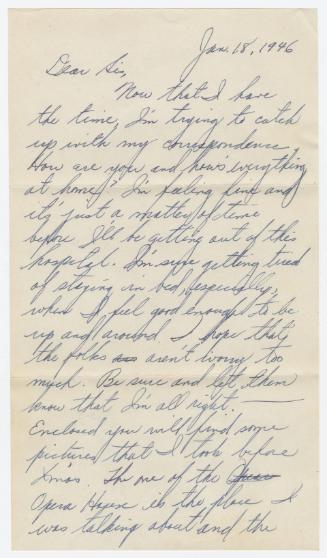 Jan. 18, 1946
Dear Sis,
Now that I have
the time, I'm trying to catch
up with my correspondence.
How are you and how's everything
at home? I'm feeling fine and
it's just a matter of time
before I'll be getting out of this
hospital. I'm sure getting tired
of staying in bed, especially,
when I feel good enough to be
up and around. I hope that
the folks aren't worry too
much. Be sure and let them
know that I'm all right. —
Enclosed you will find some
pictures that I took before
X'mas. The one of the
Opera House is the place I
was talking about and the